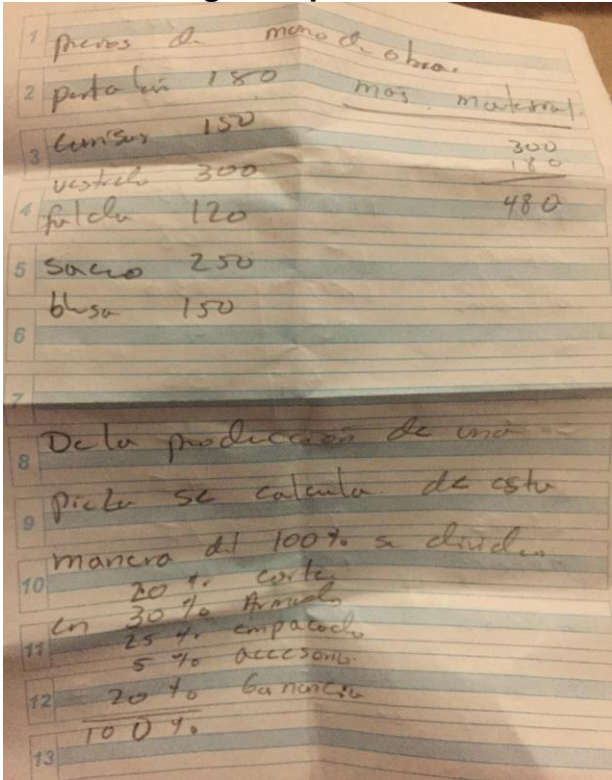 1 precios de mano de obra.
2 pantalón 180 mas material.
3 camisas 150 300
vestido 300 180
4 falda 120 480
5 sacco 250
blusa 150
6
7
8 De la producción de una
9 pieza se calcula de esta
manera del 100% se divide
10 20 % corte
en 30 % Armado
11 25 % empacado
5 % accesorio
12 20 % Ganancia
100%
13